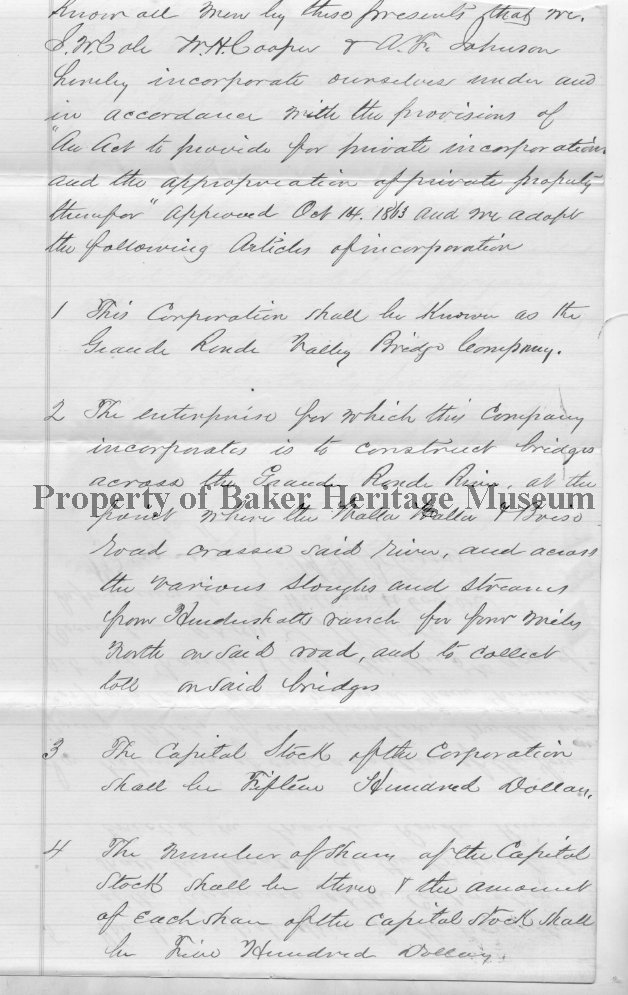 Know all Men by these presents that we.
J. W. Cole W. H. Cooper & A. F. Johnson
hereby incorporate ourselves under and
in accordance with the provisions of
"An Act to provide for private incorporations
and the appropreation of private property
therefor" Approved Oct 14. 1863 and we adopt
the following Articles of incorporation
1 This Corporation shall be Known as the
Grande Ronde Valley Bridge Company.
2 The enterprise for which this Company
incorporates is to construct bridges
across the Grande Ronde River, at the
Property of Baker Heritage Museum
point where the Walla Walla & Boise
road crosses said river, and across
the various sloughs and streams
from ranch for four miles
North on said road, and to collect
toll on said bridges
3 The Capital Stock of the Corporation
shall be Fifteen Hundred Dollars.
4 The number of shares of the Capital
Stock shall be three & the amount
of each share of the capital stock shall
be Five Hundred Dollars.